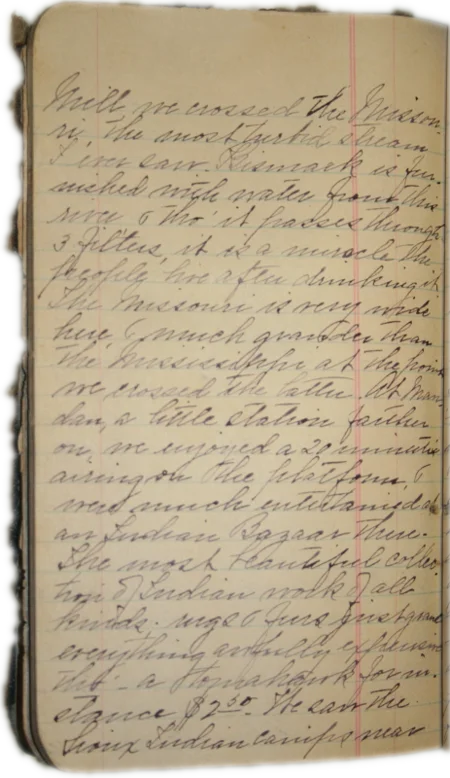 Mill, we crossed the Missou-
ri, the most turbid stream
I ever saw. Bismark is fur-
nished with water from this
river & tho' it passes through
3 filters, it is a miracle the
people live after drinking it
The Missouri is very wide
here & much grander than
the Mississippi, at the point
we crossed the latter. At Man-
dan, a little station farther
on, we enjoyed a 20 minutes
airing on the platform, &
were much entertained at
an Indian Bazaar there.
The most beautiful collec-
tion of Indian work of all
kinds. rugs & furs just grand
everything awfully expensive
tho' - a Tomahawk for in-
stance $2.50. We saw the
Sioux Indian camps near